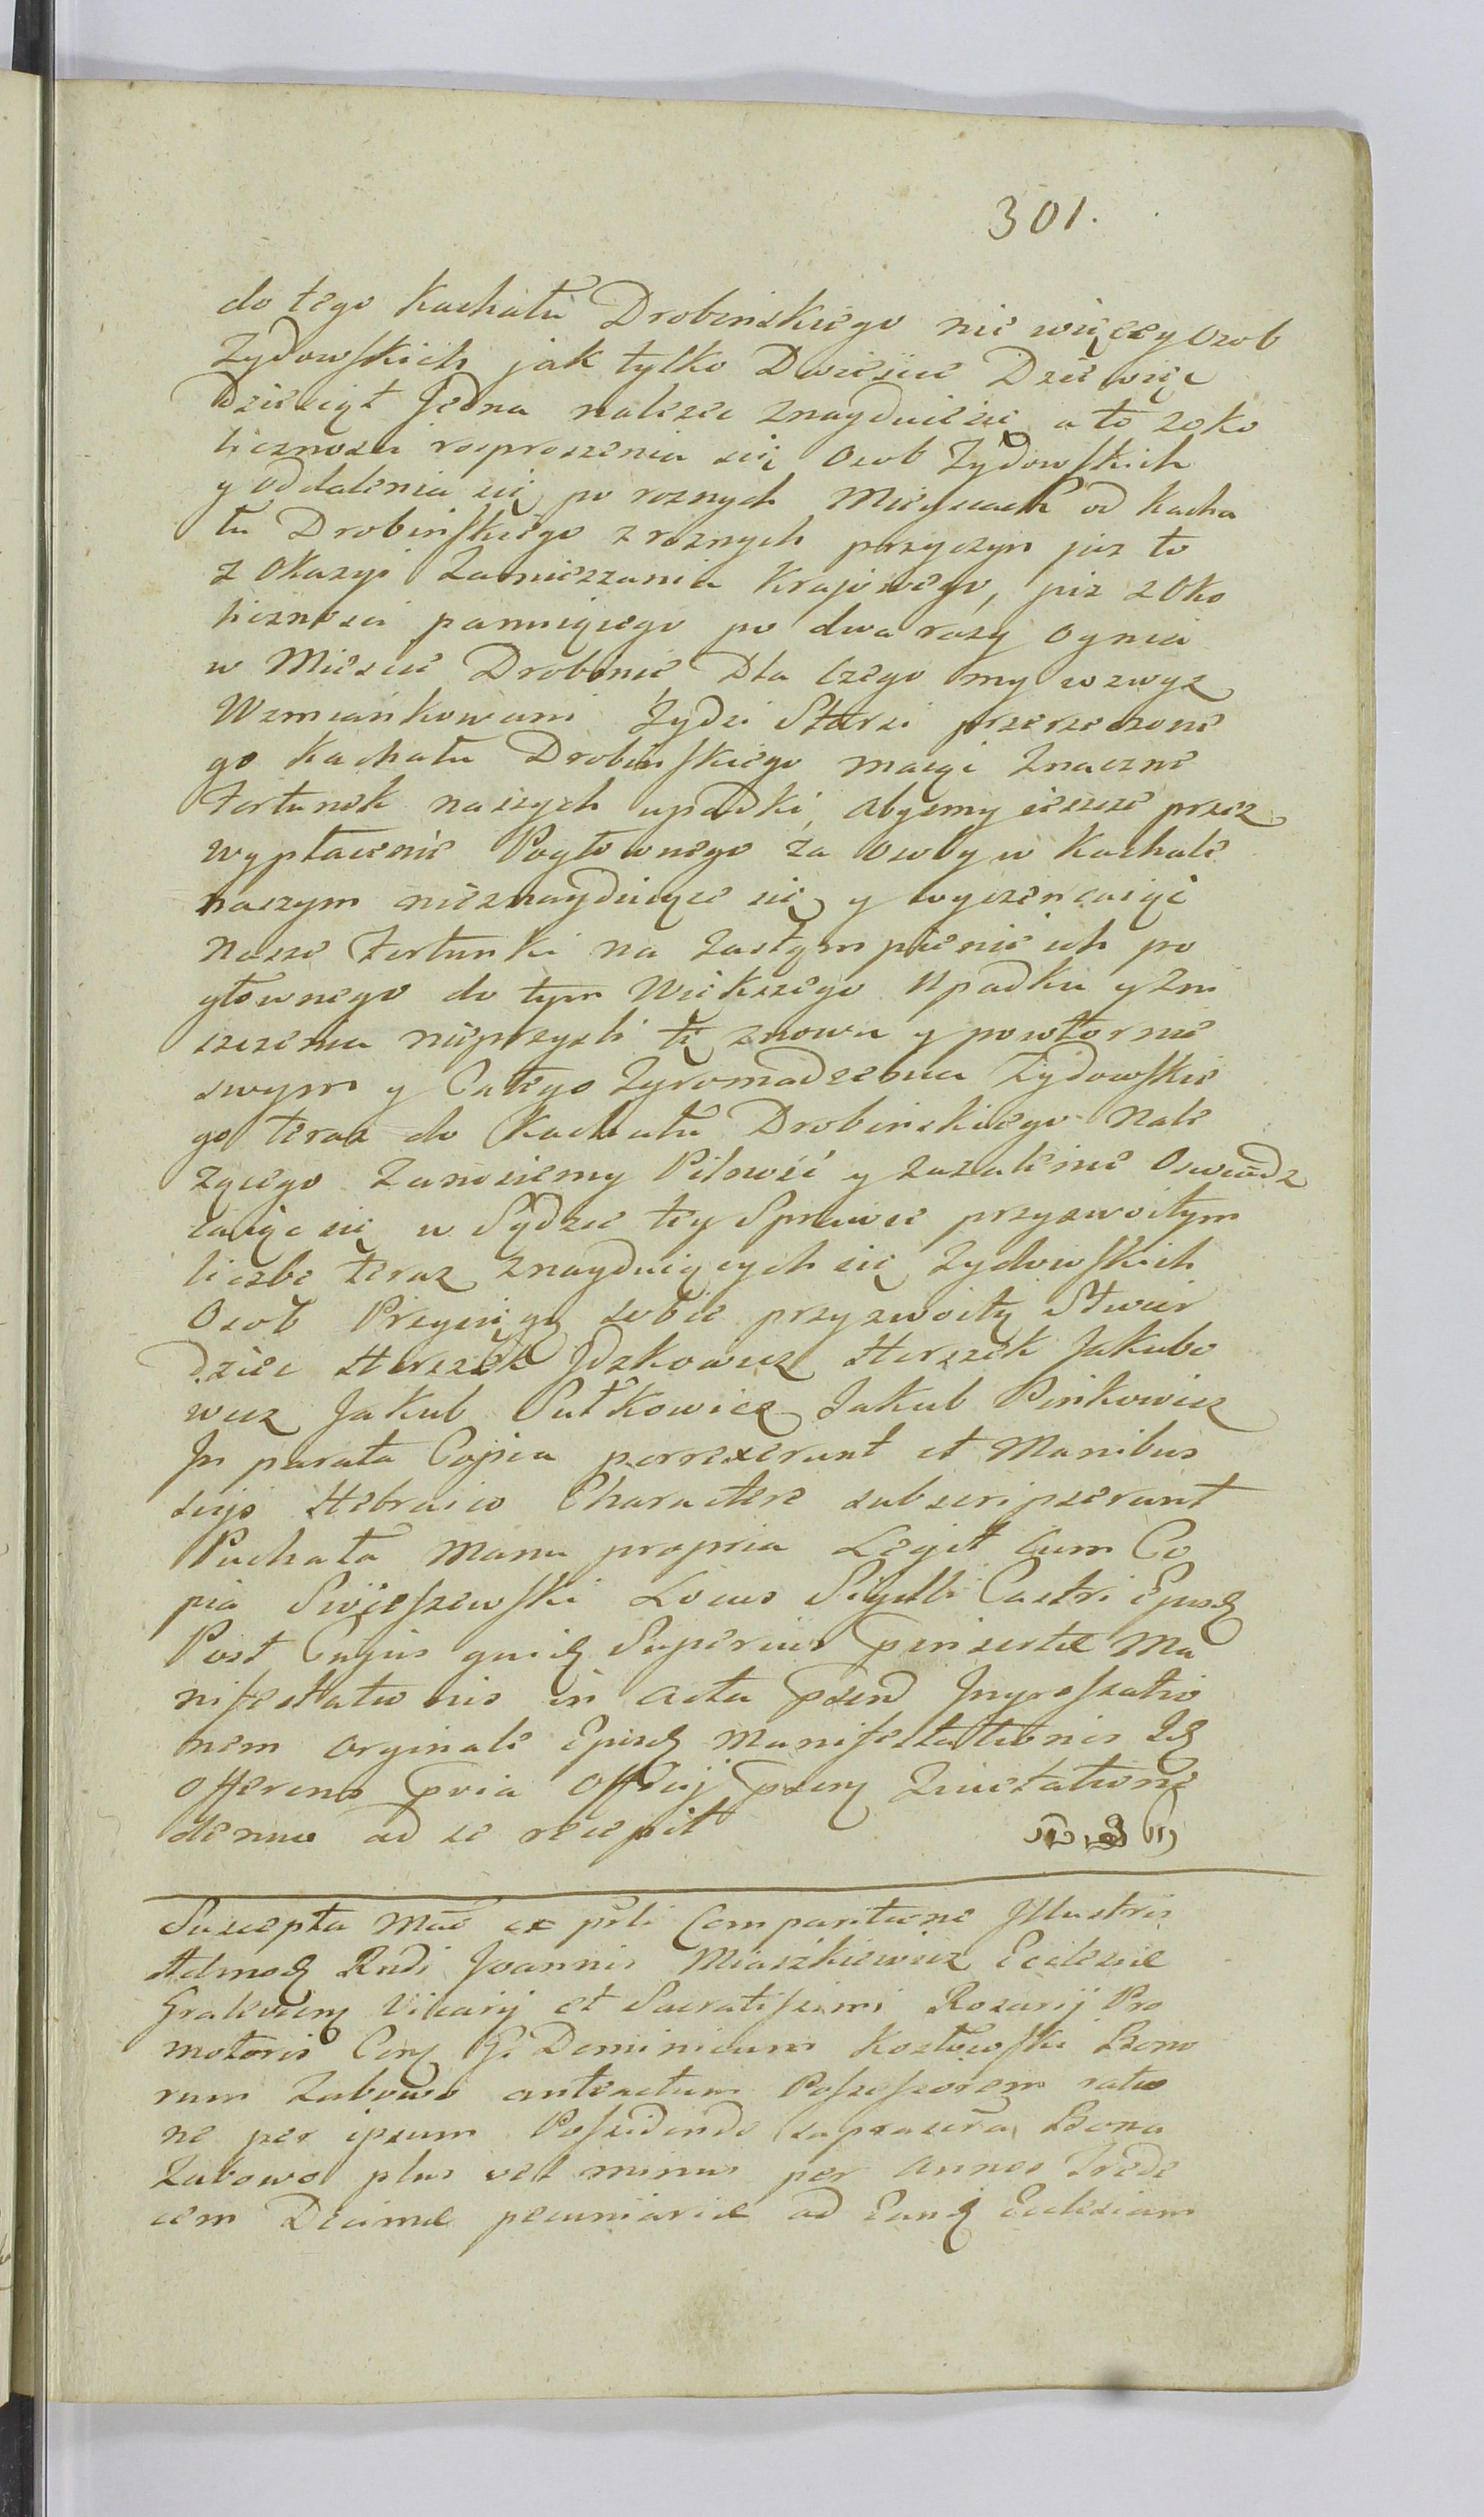 301.
do tego Kachału Drobinskiego nie więcey Osob
Zydowskich jak tylko Dwieście Dziewięc
Dziesiąt Jedna nalezec znayduie się a to zoko
licznosci rosproszenia się Osob Zydowskich
y oddalenia się po roznych Mieyscach od Kacha
łu Drobinskiego z roznych przyczyn juz to
z Okazyi Zamieszania Krajowego, juz z Oko
licznosci panuiącego po dwa razy Ognia
w Miescie Drobinie Dla czego my wzwyz
Wzmiankowani Zydzi Starsi przerzeczone
go Kachału Drobinskiego maiąc Znaczne
Fortunek naszych upadki, abysmy ieszcze przez
wypłacenie Pogłownego za Osoby w Kachale
naszym nieznayduiące się y wyczenczaiąc
nasze Fortunki na Zastąmpienie ich po
głownego do tym Wiekszego Upadku y Zni
szczenia nieprzyszli tę znowu y powtornie
swym y Całego Zgromadzenia Zydowskie
go teraz do Kachału Drobinskiego Nale
zącego Zanosiemy Pilność y zazalenie Oswiadz
caiąc się w Sądzie tey Sprawie przyzwoitym
liczbę teraz znayduiących się Zydowskich
Osob Przysięgą sobie przyzwoitą Stwier
dzic Herszek Jdzkowicz Herszek Jakubo
wicz Jakub Sułkowicz Jakub Pinkowicz
In parata Copia porrexerunt et Manibus
suis Hebraico Charactere subscripserunt
Puchała Manu propria Legit cum Co
pia Swięszewski Locus Sigilli Castri Ejusd
Post Cujus quid Superius insertae Ma
nifestationis in acta Ingrossatio
nem orginale Ejusd Manifestationis Id
offerens Officij Quietatione
denuo ad se recepit
Suscepta ex Comparitione Illustris
Admod Rndi Joannis Miaszkiewicz Ecclesiae
Vicarij et Sacratissimi Rosarij Pro
motoris Dominicum Kozłowski Bono
rum Zabowo anteactum Possessorem ratio
ne per ipsum Possidendo Bona
Zabowo plus vel minus per annos Trede
cem Decimae pecuniariae ad Eand Ecclesiam